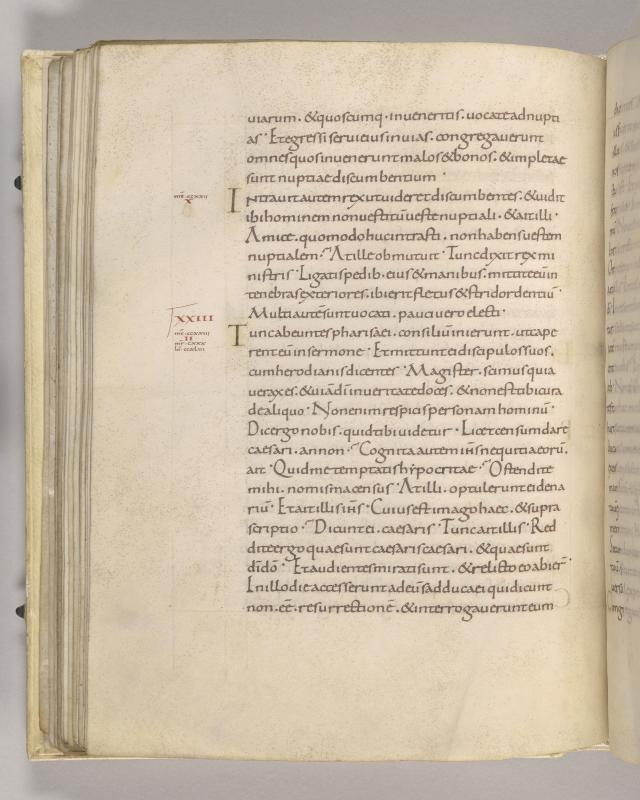 uiarum. &quoscumq. inueneritis. uocateadnupti
as· Etegressiseruieiusinuias. congregauerunt
omnesquosinueneruntmalos&bonos. &impletae
sunt nuptiaediscumbentium·
Intrauitautemrexutuideretdiscumbentes. &uidit
ibihominemnonuestitūuestenuptiali. &aitilli·
Amice. quomodohucintrasti. nonhabensuestem
nuptialem· Atilleobmutuit· Tuncdixitrexmi
nistris· Ligatispedib. eius&manibus. mittiteeūin
tenebrasexteriores. ibieritfletus&stridordentiū·
Multiautēsuntuocati. pauciueroelecti·
XXIII
Tuncabeuntespharisaei. consiliūinierunt. utcape
renteūinsermone· Etmittunteidiscipulossuos.
cumherodianisdicentes· Magister. scimusquia
ueraxes. &uiādīinueritatedoces. &nonesttibicura
dealiquo· Nonenimrespicispersonamhominū·
Dicergonobis. quidtibiuidetur· Licetcensumdare
caesari. annon· Cognitaautemihsnequitiaeorū.
ait· Quidmetemptatishypocritae· Ostendite
mihi. nomismacensus· Atilli. optulerunteidena
riū· Etaitillisihs· Cuiusestimagohaec. &supra
scriptio· Dicuntei. caesaris· Tuncaitillis· Red
diteergoquaesuntcaesariscaesari. &quaesunt
dīdō· Etaudientesmiratisunt. &relictoeoabier̄·
Inillodieaccesseruntadeūsadducaeiquidicunt
non. eē. resurrectionē. &interrogauerunteum